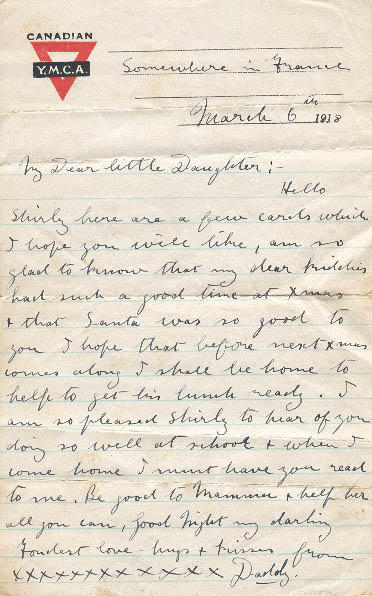 CANADIAN
Y.M.C.A.
Somewhere in France
March 6th 1918
My Dear little Daughter:-
Hello
Shirly here are a few cards which
I hope you will like, am so
glad to know that my dear kiddies
had such a good time at Xmas
+ that Santa was so good to
you I hope that before next Xmas
comes along I shall be home to
help to get his lunch ready. I
am so pleased Shirly to hear of you
doing so well at school + when I
come home I must have you read
to me. Be good to Mamma + help her
all you can, Good Night my darling
Fondest love hugs + kisses from
xxxxxxxxxxxxx Daddy.